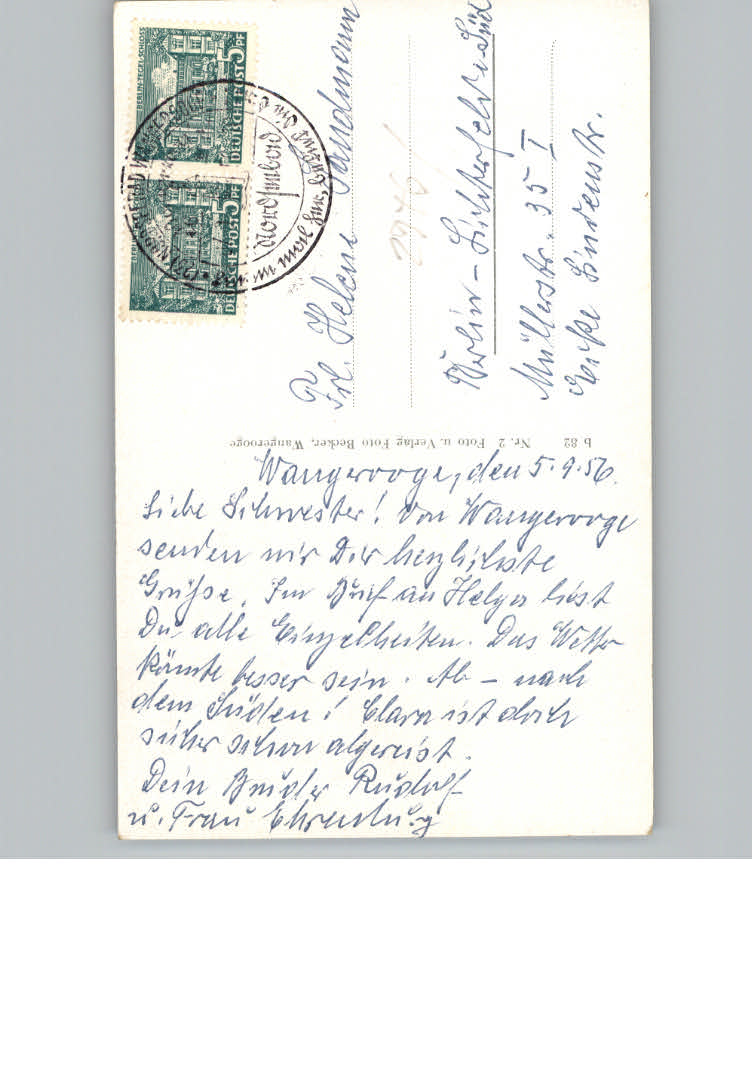 Wangerooge, den 5.9.56.
Liebe Schwester! Von Wangerooge
senden wir Dir herzlichste
Grüße. Im Brief an Helga liest
Du alle Einzelheiten. Das Wetter
könnte besser sein. Ab – nach
dem Süden! Clara ist doch
sicher schon abgereist.
Dein Bruder Rudolf
u. Frau Ehrenburg
b 82 Nr. 2 Foto u. Verlag Foto Becker, Wangerooge
Frl. Helene Sandmann
Berlin – Lichterfelde Süd
Müllerstr. 35 I
Ecke Lindenstr.
BERLIN-TEGEL, SCHLOSS
DEUTSCHE POST 5 PF
DEUTSCHE POST 5 PF
Nordseebad